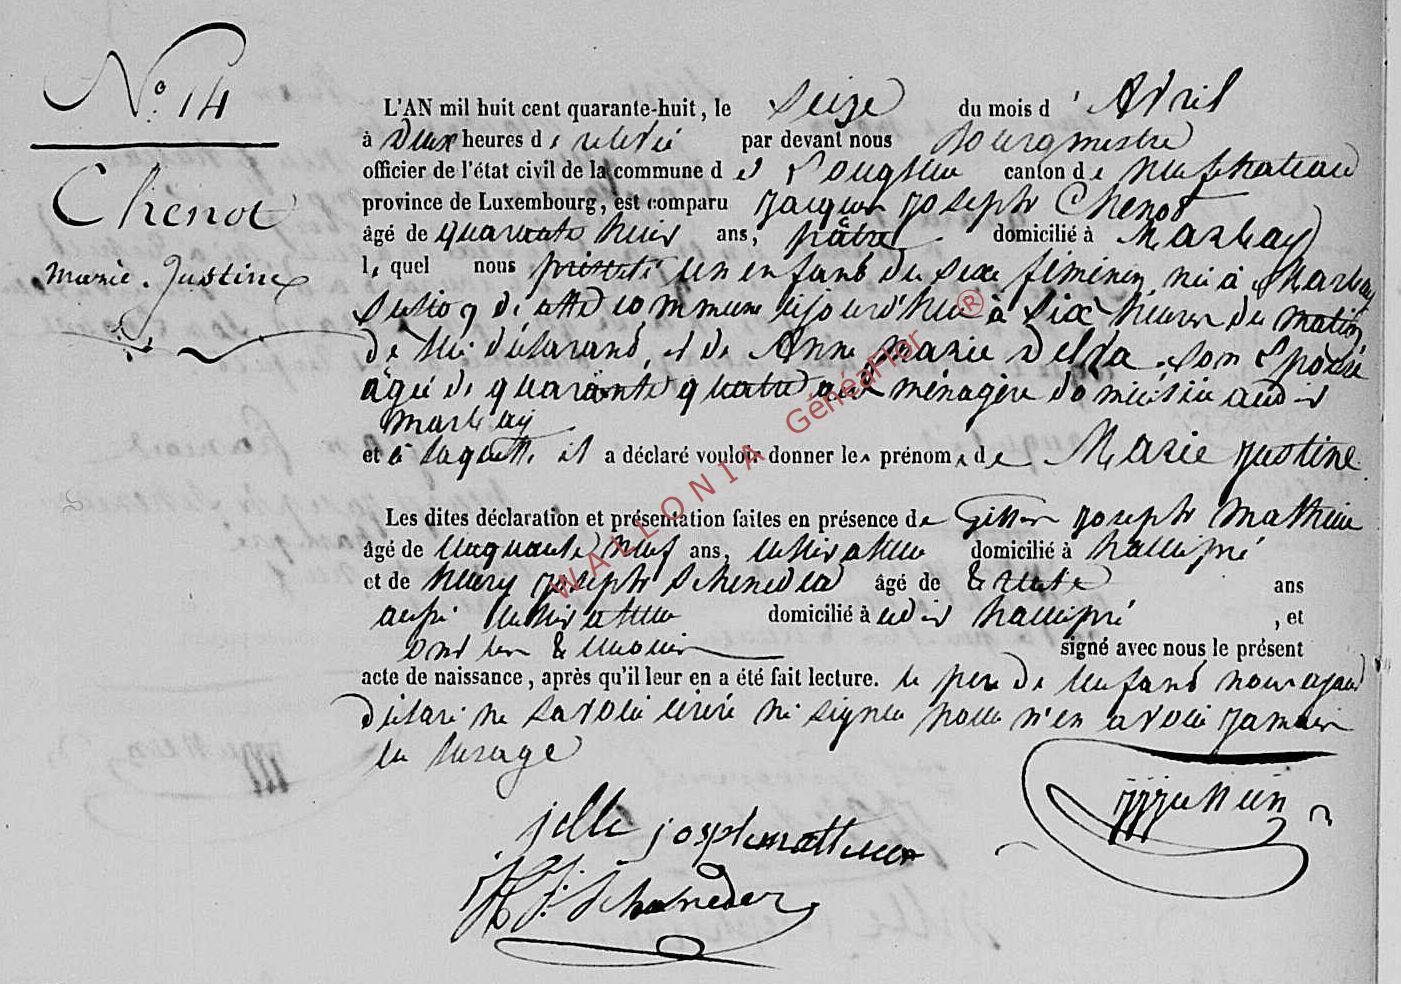 N.° 14
Chenot
Marie Justine
L'AN mil huit cent quarante-huit, le Seize du mois d' Avril
à Deux heures de relevée par devant nous Bourgmestre
officier de l'état civil de la commune de Longlier canton de neufchateau
province de Luxembourg, est comparu Jacques Joseph Chenot
âgé de quarante huit ans, pâtre domicilié à Marbay
lequel nous présenté un enfant du sexe féminin né à Marbay
section de cette commune cejourd'hui à Six heures du matin
de lui déclarant, et de Anne Marie Delva Son Epouse
agée de quarante quatre ans ménagère domiciliée audit
Marbay
et à laquelle il a déclaré vouloir donner les prénoms de Marie Justine
Les dites déclaration et présentation faites en présence de Gilles Joseph Mathieu
âgé de cinquante neuf ans, cultivateur domicilié à hamipré
et de henry Joseph Scheneder âgé de trente ans
aussi cultivateur domicilié à udit hamipré , et
ont les témoins signé avec nous le présent
acte de naissance, après qu'il leur en a été fait lecture. le père de l'enfant nous ayant
déclaré ne savoir écrire ni signer pour n'en avoir jamais
eu l'usage
jille joseph mathieu
H J. Scheneder
WALLONIA GénéaFlor ®